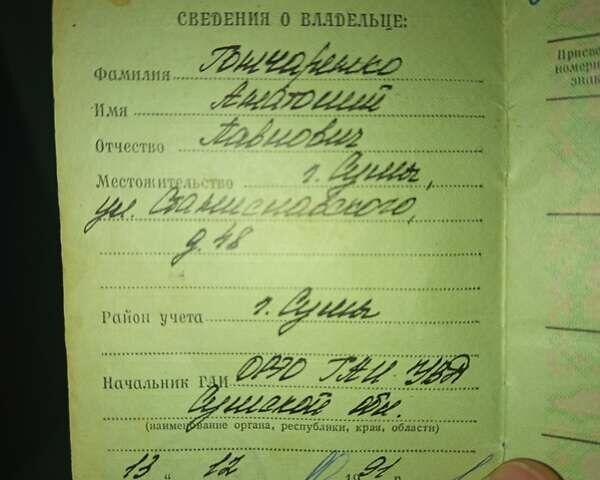 СВЕДЕНИЯ О ВЛАДЕЛЬЦЕ:
Фамилия Гончаренко
Имя Анатолий
Отчество Павлович
Местожительство г. Сумы,
ул. Станиславского,
д. 48
Район учета г. Сумы
Начальник ГАИ ОРЭО ГАИ УВД
Сумской обл.
(наименование органа, республики, края, области)
13 " 12 1991 г
Присво
номерн
знак